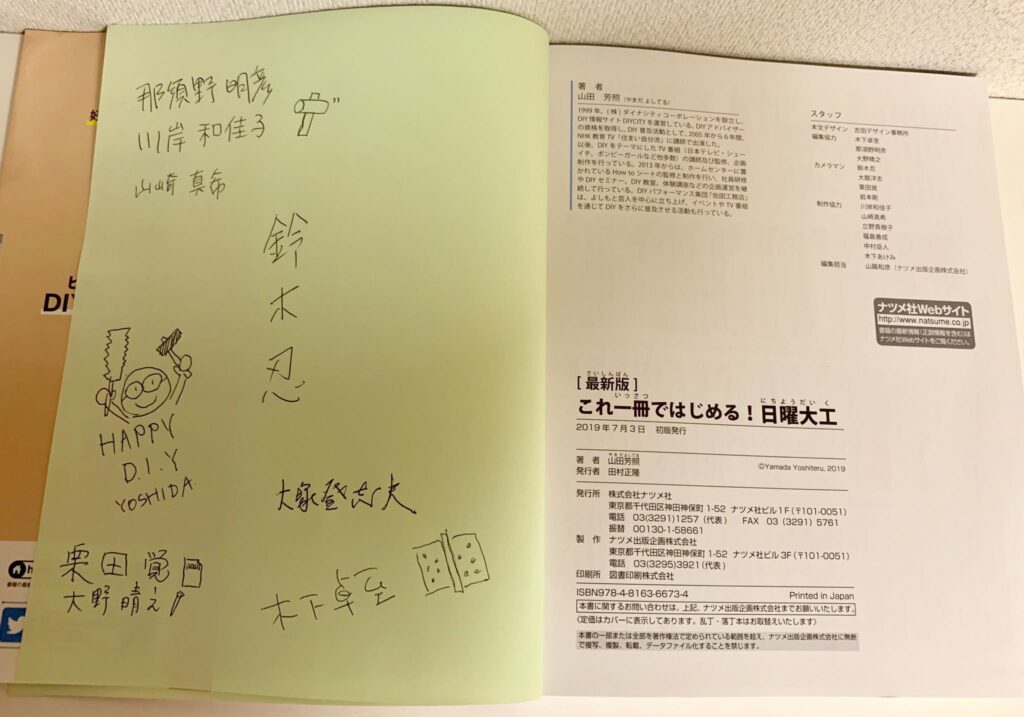 那須野明彦
川岸 和佳子
山崎 真希
鈴木忍
HAPPY
D.I.Y
YOSHIDA
大塚登志夫
栗田 覚
大野晴之
木下卓至
DIY
著 者
山田 芳照（やまだ よしてる）
1999年、(株)ダイナシティコーポレーションを設立し、
DIY情報サイトDIYCITYを運営している。DIYアドバイザー
の資格を取得し、DIY普及活動として、2005年から6年間、
NHK教育TV「住まい自分流」に講師で出演した。
以後、DIYをテーマにしたTV番組（日本テレビ・シュー
イチ、ボンビーガールなど他多数）の講師及び監修、企画
制作を行っている。2013年からは、ホームセンターに置
かれているHow toシートの監修と制作を行い、社員研修
やDIYセミナー、DIY教室、体験講座などの企画運営を継
続して行っている。DIYパフォーマンス集団「佐田工務店」
は、よしもと芸人を中心に立ち上げ、イベントやTV番組
を通じてDIYをさらに普及させる活動も行っている。
スタッフ
本文デザイン 吉田デザイン事務所
編集協力 木下卓至
那須野明彦
大野晴之
カメラマン 鈴木忍
大館洋志
栗田覚
岩本剛
制作協力 川岸和佳子
山崎真希
立野真樹子
福島善成
中村岳人
木下あけみ
編集担当 山路和彦（ナツメ出版企画株式会社）
ナツメ社Webサイト
http://www.natsume.co.jp
書籍の最新情報（正誤情報を含む）は
ナツメ社Webサイトをご覧ください。
さいしんばん
［最新版］
いっさつ にちようだいく
これ一冊ではじめる！日曜大工
2019年7月3日 初版発行
やまだよしてる
著 者 山田芳照
©Yamada Yoshiteru, 2019
発行者 田村正隆
発行所 株式会社ナツメ社
東京都千代田区神田神保町1-52 ナツメ社ビル1F（〒101-0051）
電話 03(3291)1257（代表） FAX 03(3291)5761
振替 00130-1-58661
製 作 ナツメ出版企画株式会社
東京都千代田区神田神保町1-52 ナツメ社ビル3F（〒101-0051）
電話 03(3295)3921（代表）
印刷所 図書印刷株式会社
ISBN978-4-8163-6673-4 Printed in Japan
本書に関するお問い合わせは、上記、ナツメ出版企画株式会社までお願いいたします。
〈定価はカバーに表示してあります。乱丁・落丁本はお取替えいたします〉
本書の一部または全部を著作権法で定められている範囲を超え、ナツメ出版企画株式会社に無断
で複写、複製、転載、データファイル化することを禁じます。